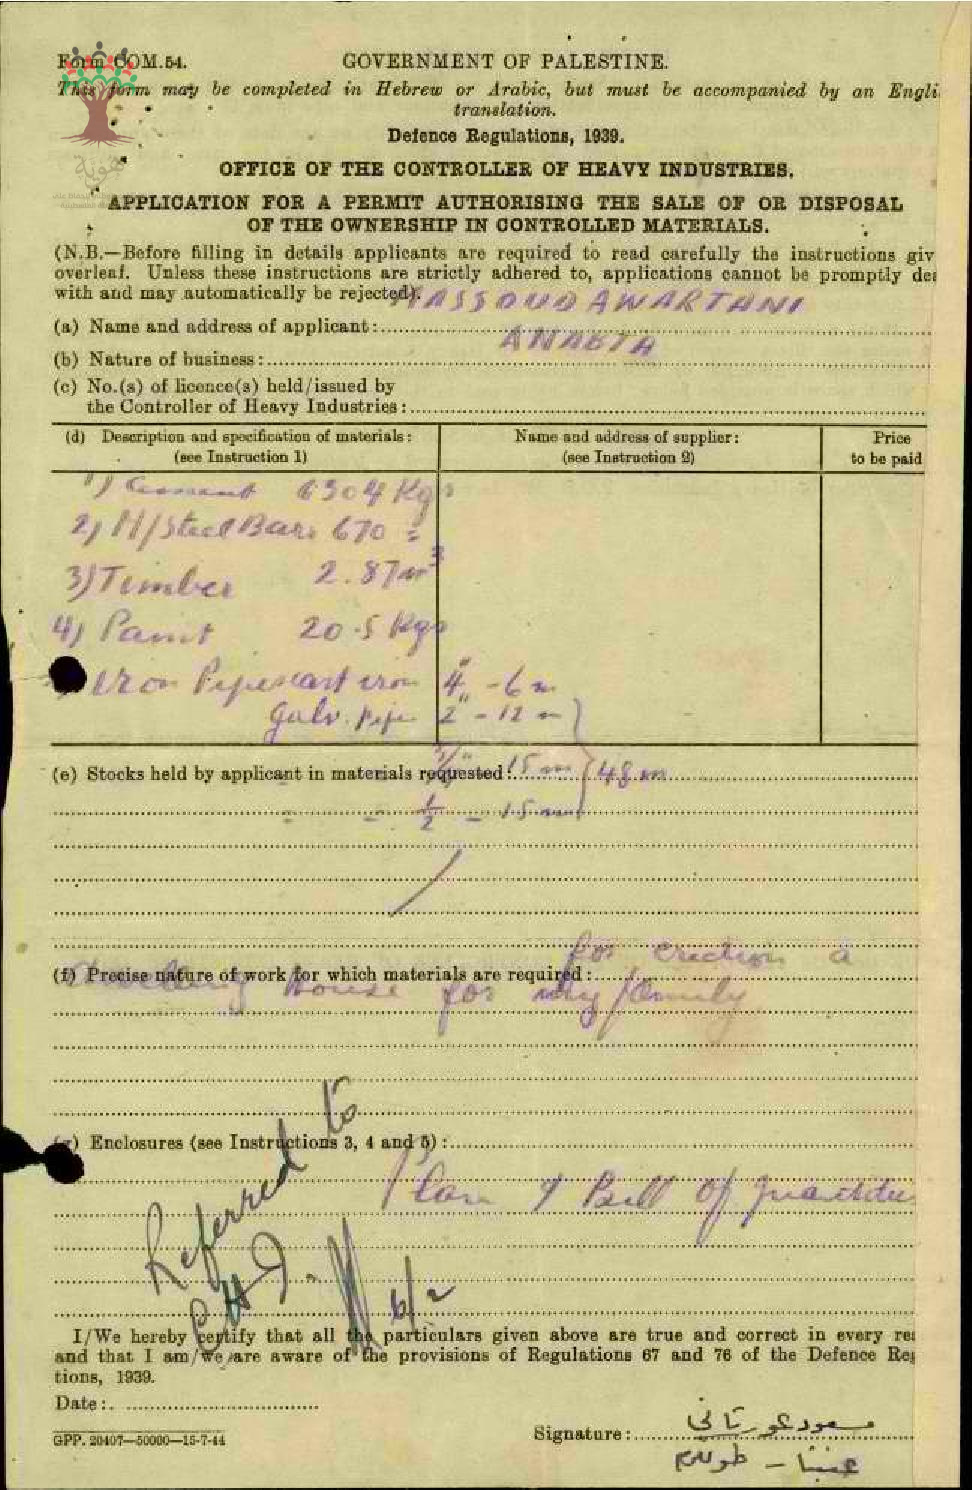 Form COM.54.
GOVERNMENT OF PALESTINE.
This form may be completed in Hebrew or Arabic, but must be accompanied by an Engli
translation.
Defence Regulations, 1939.
OFFICE OF THE CONTROLLER OF HEAVY INDUSTRIES.
APPLICATION FOR A PERMIT AUTHORISING THE SALE OF OR DISPOSAL
OF THE OWNERSHIP IN CONTROLLED MATERIALS.
(N.B.—Before filling in details applicants are required to read carefully the instructions giv
overleaf. Unless these instructions are strictly adhered to, applications cannot be promptly dea
with and may automatically be rejected).
MASSOUD AWARTANI
(a) Name and address of applicant:
ANABTA
(b) Nature of business:
(c) No.(s) of licence(s) held/issued by
the Controller of Heavy Industries:
(d) Description and specification of materials: Name and address of supplier: Price
(see Instruction 1) (see Instruction 2) to be paid
1) Cement 6304 Kgs
2) M/Steel Bars 670 =
3) Timber 2.87 m³
4) Paint 20.5 Kgs
Iron Pipes cast iron 4" - 6 m
galv. pipe 2" - 12 m
(e) Stocks held by applicant in materials requested: 15 m 48 m
= = 1/2 - 15 m
for erection a
(f) Precise nature of work for which materials are required:
dwelling house for my family
(g) Enclosures (see Instructions 3, 4 and 5):
Plan & Bill of
Referred to
6/2
I/We hereby certify that all the particulars given above are true and correct in every res
and that I am/we are aware of the provisions of Regulations 67 and 76 of the Defence Reg
tions, 1939.
Date:
GPP. 20407—50000—15-7-44
Signature: مسعود عورتاني
عنبتا - طولكرم